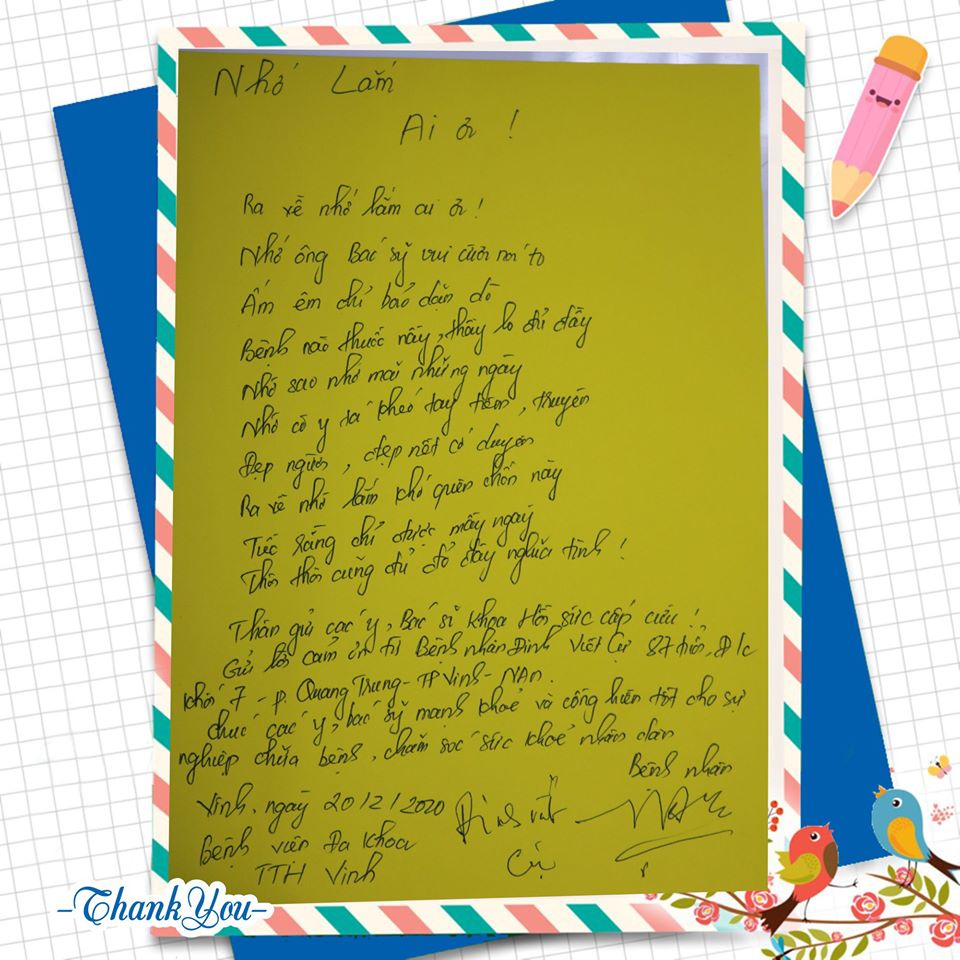 Nhớ Lắm
Ai ơi !
Ra về nhớ lắm ai ơi !
Nhớ ông Bác sỹ vui cười nói to
Ấm êm chỉ bảo dặn dò
Bệnh nào thuốc nấy, thầy lo đủ đầy
Nhớ sao nhớ mãi những ngày
Nhớ cô y tá khéo tay tiêm, truyền
Đẹp người, đẹp nết có duyên
Ra về nhớ lắm khó quên chốn này
Tiếc rằng chỉ được mấy ngày
Thôi thôi cũng đủ đổ đầy nghĩa tình !
Thân gửi các y, Bác sĩ khoa Hồi sức cấp cứu !
Gửi lời cảm ơn từ Bệnh nhân Đinh Viết Cự 87 tuổi, Đ/c
khối 7 - p. Quang Trung - TP Vinh - NAn.
chúc các y, bác sỹ mạnh khoẻ và cống hiến tốt cho sự
nghiệp chữa bệnh, chăm sóc sức khoẻ nhân dân
Bệnh nhân
Vinh, ngày 20/2/2020
Bệnh viện Đa khoa
TTH Vinh
Đinh Viết
Cự
-Thank You-